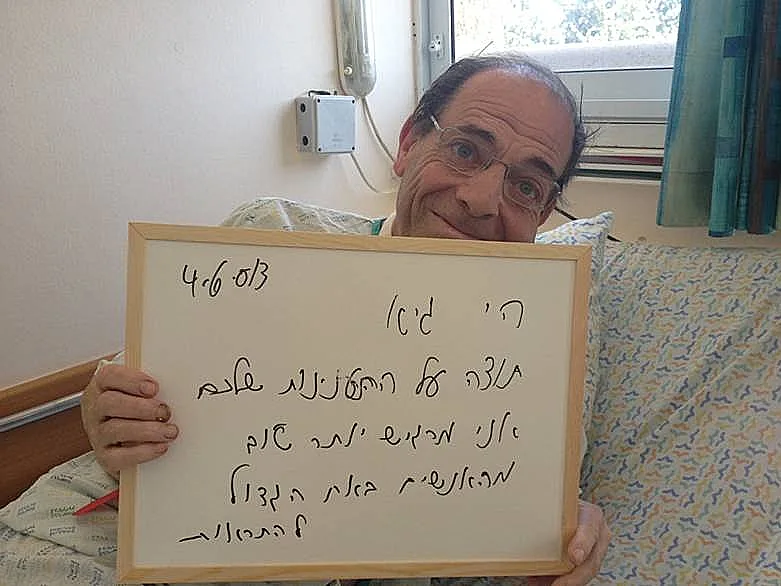 הי גיא
תודה על ההתענינות שלכם
אני מרגיש יותר טוב
מהאנשים באח הגדול
להתראות